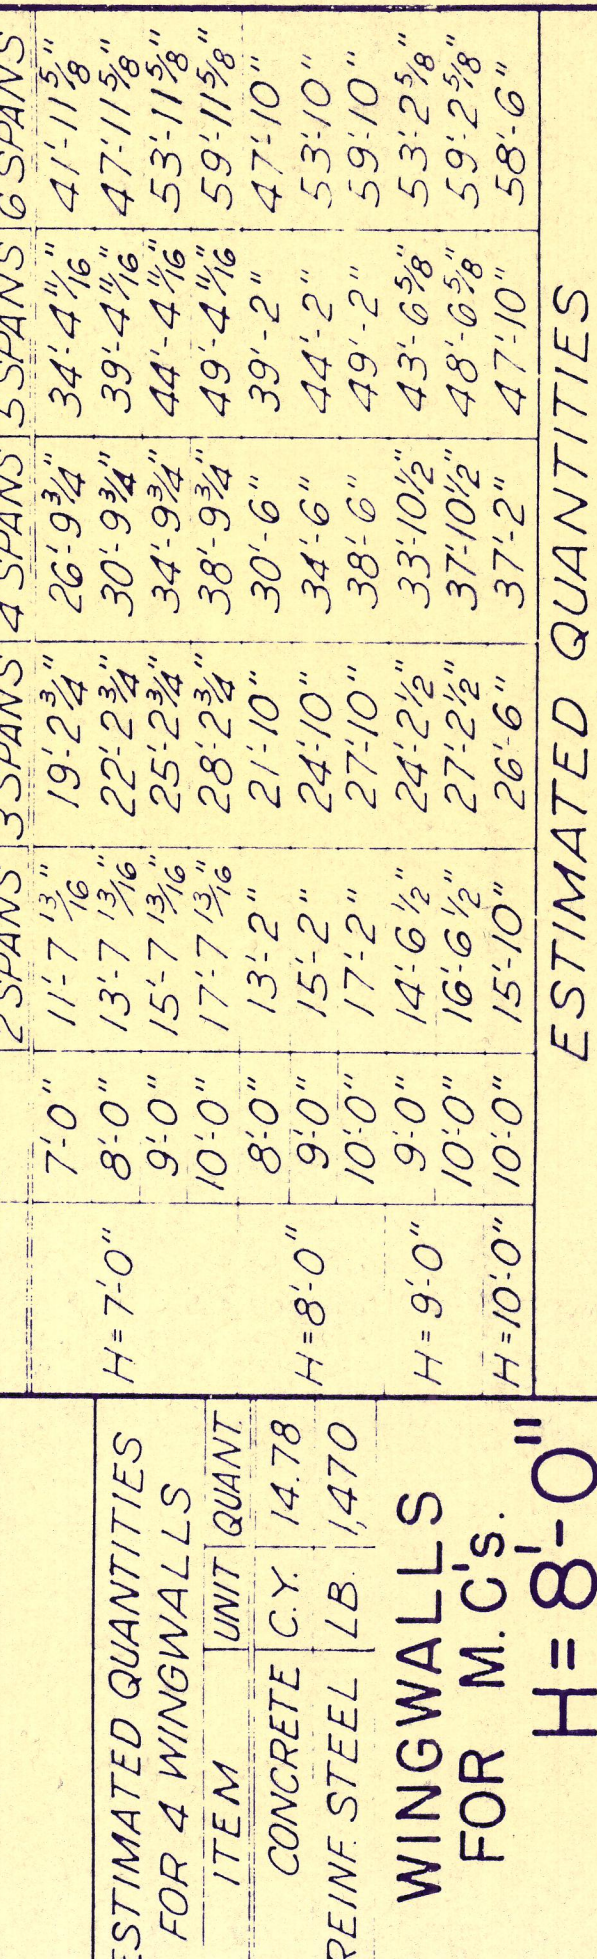 2 SPANS 3 SPANS 4 SPANS 5 SPANS 6 SPANS
H=7'-0" 7'-0" 11'-7 13/16" 19'-2 3/4" 26'-9 3/4" 34'-4 11/16" 41'-11 5/8"
8'-0" 13'-7 13/16" 22'-2 3/4" 30'-9 3/4" 39'-4 11/16" 47'-11 5/8"
9'-0" 15'-7 13/16" 25'-2 3/4" 34'-9 3/4" 44'-4 11/16" 53'-11 5/8"
10'-0" 17'-7 13/16" 28'-2 3/4" 38'-9 3/4" 49'-4 11/16" 59'-11 5/8"
H=8'-0" 8'-0" 13'-2" 21'-10" 30'-6" 39'-2" 47'-10"
9'-0" 15'-2" 24'-10" 34'-6" 44'-2" 53'-10"
10'-0" 17'-2" 27'-10" 38'-6" 49'-2" 59'-10"
H=9'-0" 9'-0" 14'-6 1/2" 24'-2 1/2" 33'-10 1/2" 43'-6 5/8" 53'-2 5/8"
10'-0" 16'-6 1/2" 27'-2 1/2" 37'-10 1/2" 48'-6 5/8" 59'-2 5/8"
H=10'-0" 10'-0" 15'-10" 26'-6" 37'-2" 47'-10" 58'-6"
ESTIMATED QUANTITIES
ESTIMATED QUANTITIES
FOR 4 WINGWALLS
ITEM UNIT QUANT.
CONCRETE C.Y. 14.78
REINF. STEEL LB. 1,470
WINGWALLS
FOR M.C's.
H=8'-0"